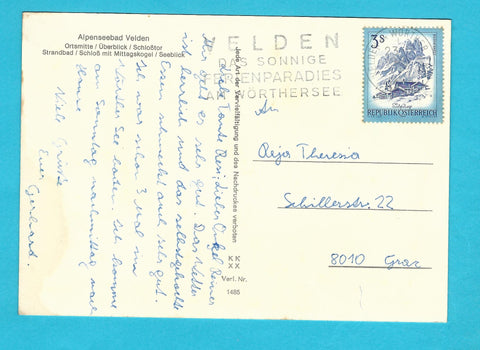 Alpenseebad Velden
Ortsmitte / Überblick / Schloßtor
Strandbad / Schloß mit Mittagskogel / Seeblick
Liebe Tante Resi, Lieber Onkel Reiner
Mir geht es sehr gut. Das Wetter
ist herrlich und das selbstgekochte
Essen schmeckt auch sehr gut.
Ich war schon 3 mal im
Wörther See baden. Ich komme
am Sonntag nachmittag nach
Hause
Viele Grüße
Euer Gerhard.
Jede Art der Vervielfältigung und des Nachdruckes verboten
KK
XX
Verl. Nr.
1485
VELDEN
DAS SONNIGE
FERIENPARADIES
AM WÖRTHERSEE
3s
REPUBLIK ÖSTERREICH
An
Reja Theresia
Schillerstr. 22
8010 Graz